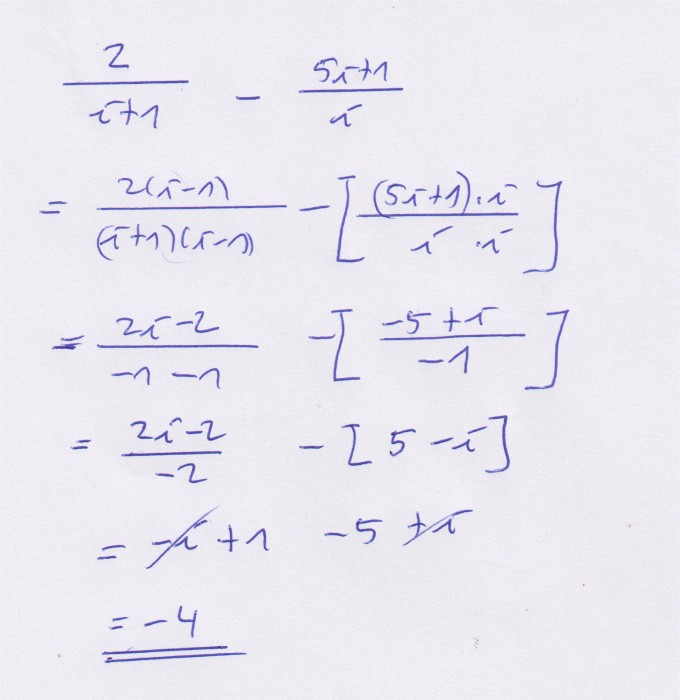 2/(i+1) - (5i+1)/i
= 2(i-1)/((i+1)(i-1)) - [(5i+1)·i/(i·i)]
= (2i-2)/(-1-1) - [(-5+i)/(-1)]
= (2i-2)/(-2) - [5-i]
= -i+1 -5+i
= -4